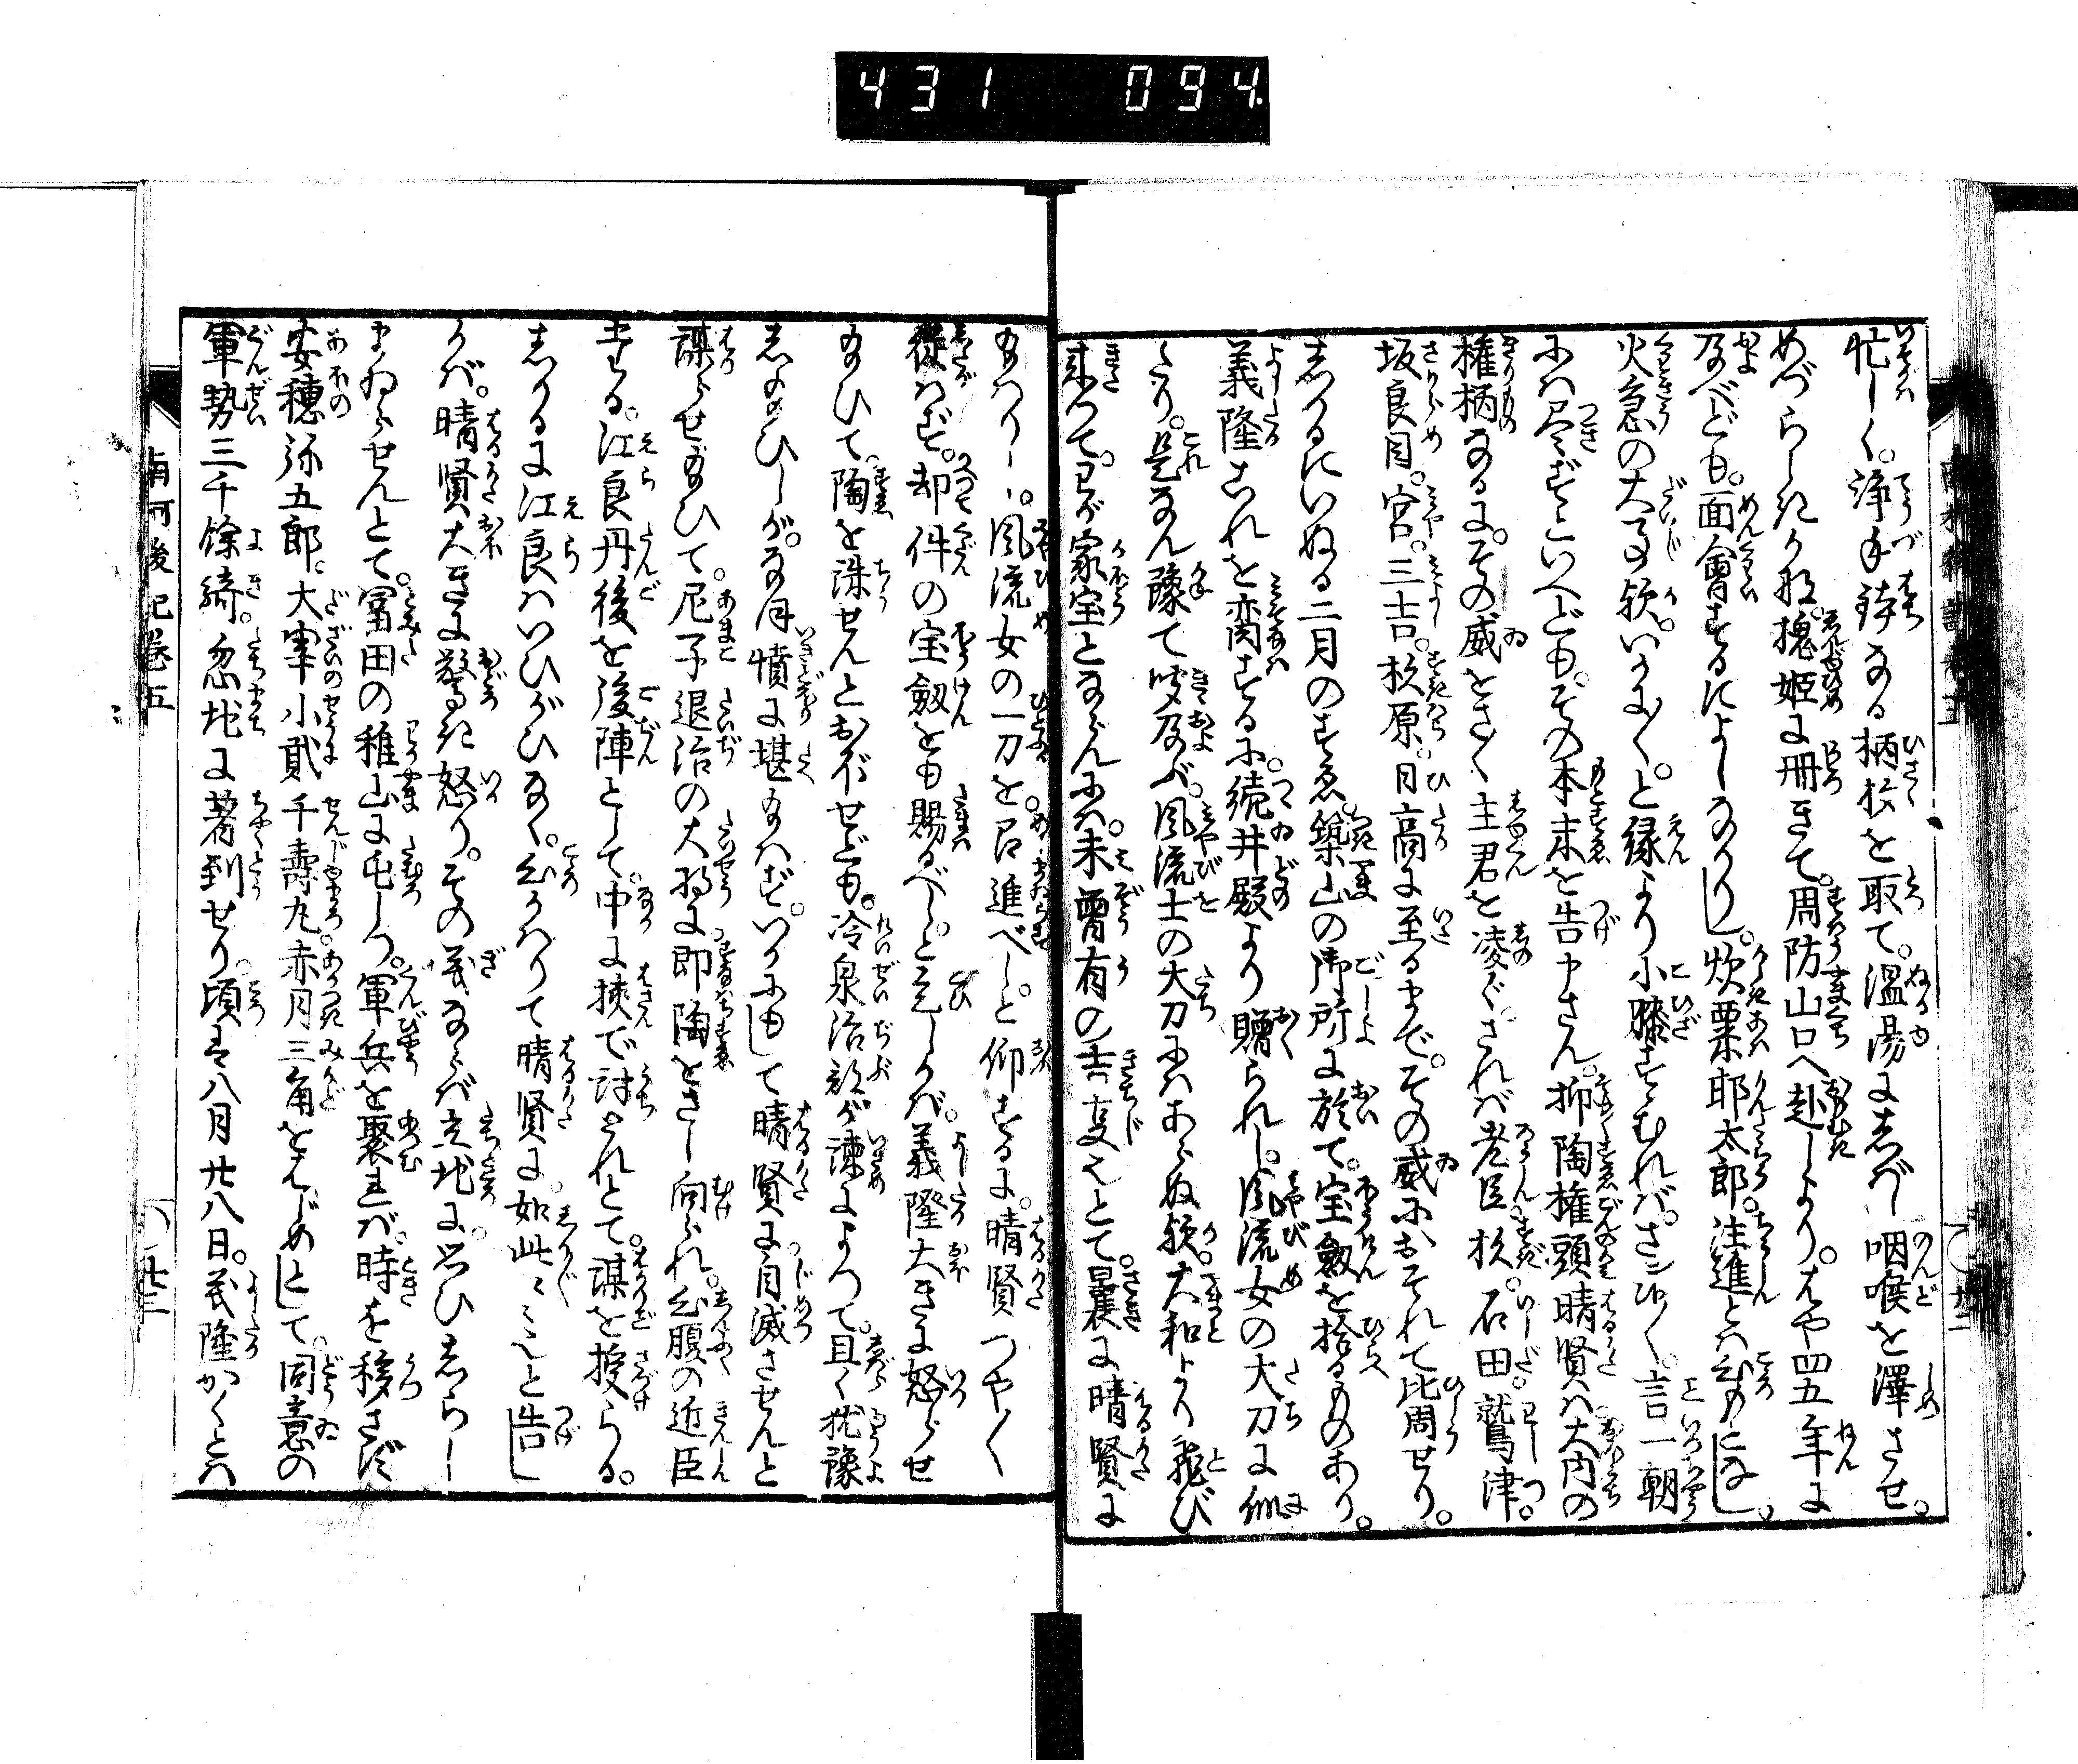 431 094.
忙しく。浄手鉢なる柄杓を取て。温湯にしめし咽喉を澤させ。
めづらしきかな。槐姫に冊きて。周防山口へ赴しより。はや四五年に
及べども。面會するによしなかりし。炊粟耶太郎。注進とは心もとなし。
火急の大事歟。いかに〱。と縁より小膝すゝむれば。さン候〱。言一朝
には尽ずといへども。その本末を告申さん。抑陶権頭晴賢は大内の
権柄なるに。その威をさへ主君を凌ぐ。されば老臣杦。石田。鷲津。
坂良目。宮。三吉。杦原。日高に至るまで。その威におそれて比周せり。
しかるにいぬる二月のすゑ。築山の御所に於て。宝劔を捨るものあり。
義隆これを閲するに。続井殿より贈られし。風流女の大刀に似
たり。是なん豫て咬及ぶ。風流士の大刀にはあらぬ歟。大和より飛び
来つて。わが家宝とならんは。未曽有の吉事也とて。曩に晴賢に
給はりし。風流女の一刀を。召進べしと仰するに。晴賢つや〱
従はず。却件の宝劔をも賜るべし。と乞しかば。義隆大きに怒らせ
給ひて。陶を誅せんとおぼせども。冷泉治部が諌によつて。且く猶豫
し給ひしが。なほ憤に堪給はず。いかにもして晴賢に自滅させんと
謀らせ給ひて。尼子退治の大将に即陶をさし向られ。心腹の近臣
する。江良丹後を後陣として。中に挟で討とれとて。謀を授らる。
しかるに江良はいひがひなく。心かはりて晴賢に。如此〻〻と告し
かば。晴賢大きに驚き怒り。その義ならば立地に。思ひしらし
まゐらせんとて。富田の稚山に屯しつ。軍兵を聚れば。時を移さず
安穗弥五郎。大宰小貳千壽丸。赤月三角をはじめとして。同意の
軍勢三千餘綺。忽地に著到せり。頃は八月廿八日。義隆かくとは
南柯後記巻五
〇廿三